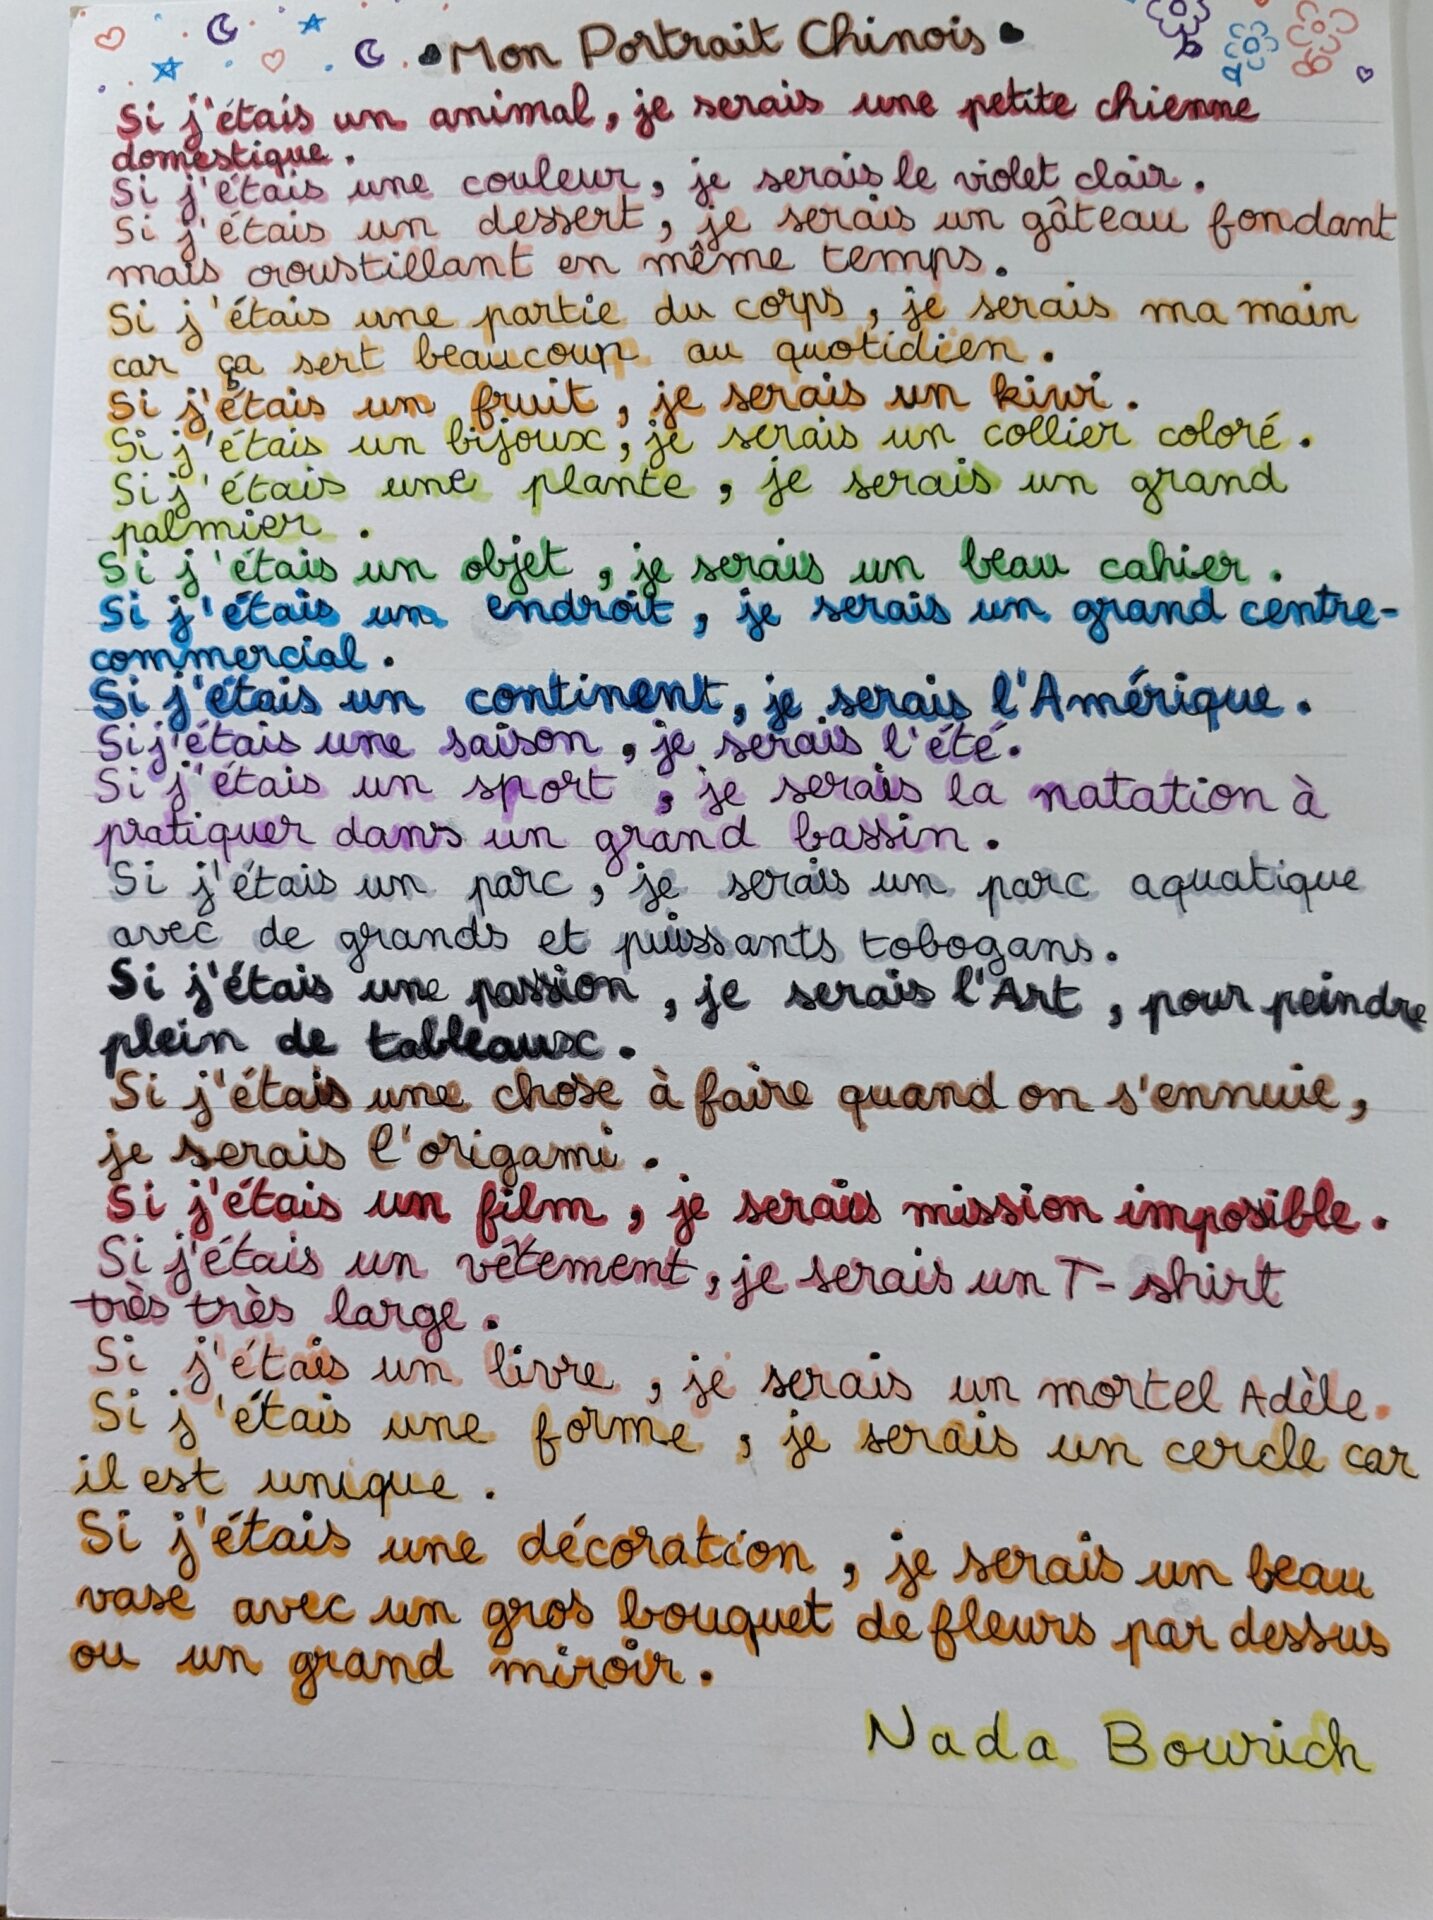 Mon Portrait Chinois
Si j'étais un animal, je serais une petite chienne
domestique.
Si j'étais une couleur, je serais le violet clair.
Si j'étais un dessert, je serais un gâteau fondant
mais croustillant en même temps.
Si j'étais une partie du corps, je serais ma main
car ça sert beaucoup au quotidien.
Si j'étais un fruit, je serais un kiwi.
Si j'étais un bijoux, je serais un collier coloré.
Si j'étais une plante, je serais un grand
palmier.
Si j'étais un objet, je serais un beau cahier.
Si j'étais un endroit, je serais un grand centre-
commercial.
Si j'étais un continent, je serais l'Amérique.
Si j'étais une saison, je serais l'été.
Si j'étais un sport, je serais la natation à
pratiquer dans un grand bassin.
Si j'étais un parc, je serais un parc aquatique
avec de grands et puissants tobogans.
Si j'étais une passion, je serais l'Art, pour peindre
plein de tableaux.
Si j'étais une chose à faire quand on s'ennuie,
je serais l'origami.
Si j'étais un film, je serais mission imposible.
Si j'étais un vêtement, je serais un T-shirt
très très large.
Si j'étais un livre, je serais un mortel Adèle.
Si j'étais une forme, je serais un cercle car
il est unique.
Si j'étais une décoration, je serais un beau
vase avec un gros bouquet de fleurs par dessus
ou un grand miroir.
Nada Bourich